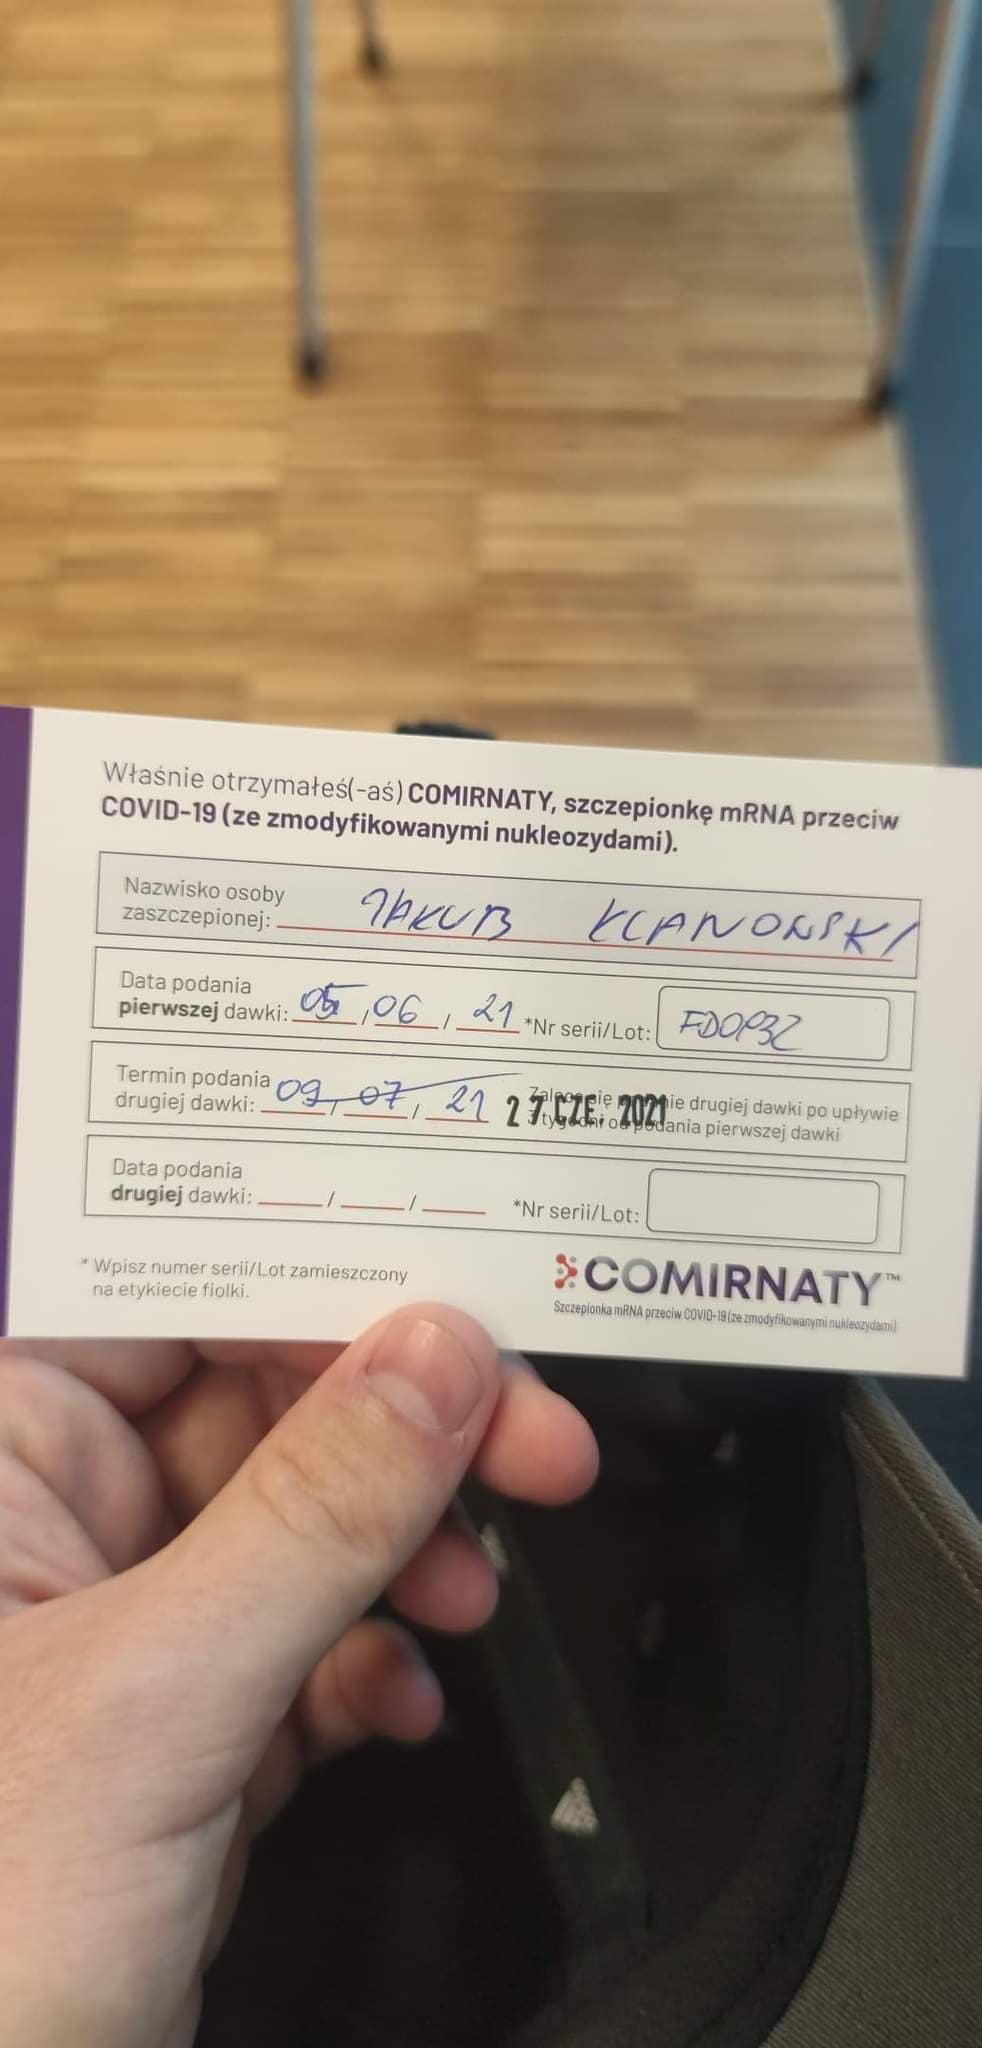 Właśnie otrzymałeś(-aś) COMIRNATY, szczepionkę mRNA przeciw
COVID-19 (ze zmodyfikowanymi nukleozydami).
Nazwisko osoby
zaszczepionej: JAKUB KLANOWSKI
Data podania
pierwszej dawki: 05, 06, 21 *Nr serii/Lot:
Termin podania
drugiej dawki: 09/07/21 27. CZE. 2021
nie drugiej dawki po upływie
podania pierwszej dawki
Data podania
drugiej dawki: / / *Nr serii/Lot:
* Wpisz numer serii/Lot zamieszczony
na etykiecie fiolki.
COMIRNATY™
Szczepionka mRNA przeciw COVID-19 (ze zmodyfikowanymi nukleozydami)